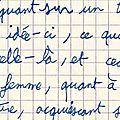 quant sur un t
idé-ci, ce qu
elle-là, et ce
femme, quant à
re, acquiescant s